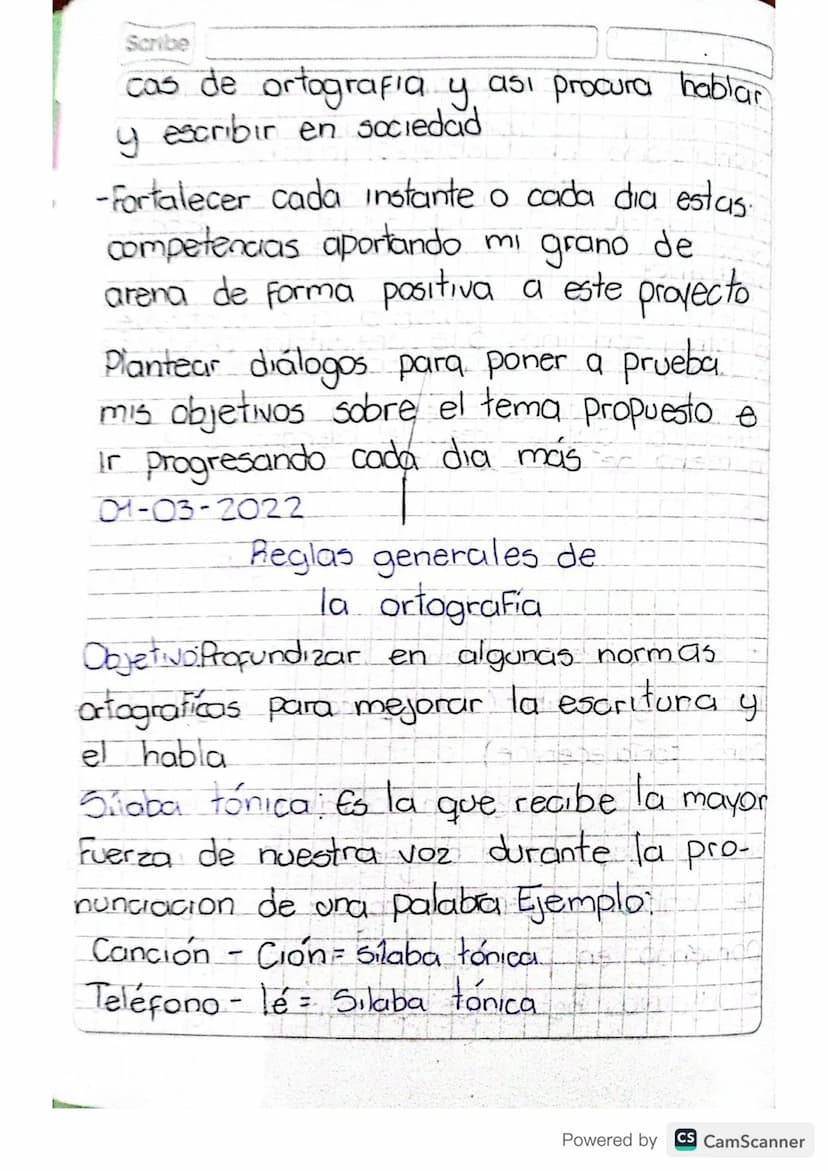 Scribe
cas de ortografia y asi procura hablar
y escribir en sociedad
-Fortalecer cada instante o cada dia estas
competencias aportando mi grano de
arena de forma positiva a este proyecto
Plantear diálogos para poner a prueba
mis objetivos sobre el tema propuesto e
ir progresando cada dia más
01-03-2022
Reglas generales de
la ortografía
Objetivo: Profundizar en algunas normas
ortograficas para mejorar la escritura y
el habla
Sílaba tónica: Es la que recibe la mayor
fuerza de nuestra voz durante la pro-
nunciacion de una palabra Ejemplo:
Canción - Ción = Sílaba tónica
Teléfono - lé = Silaba tónica
Powered by CS CamScanner